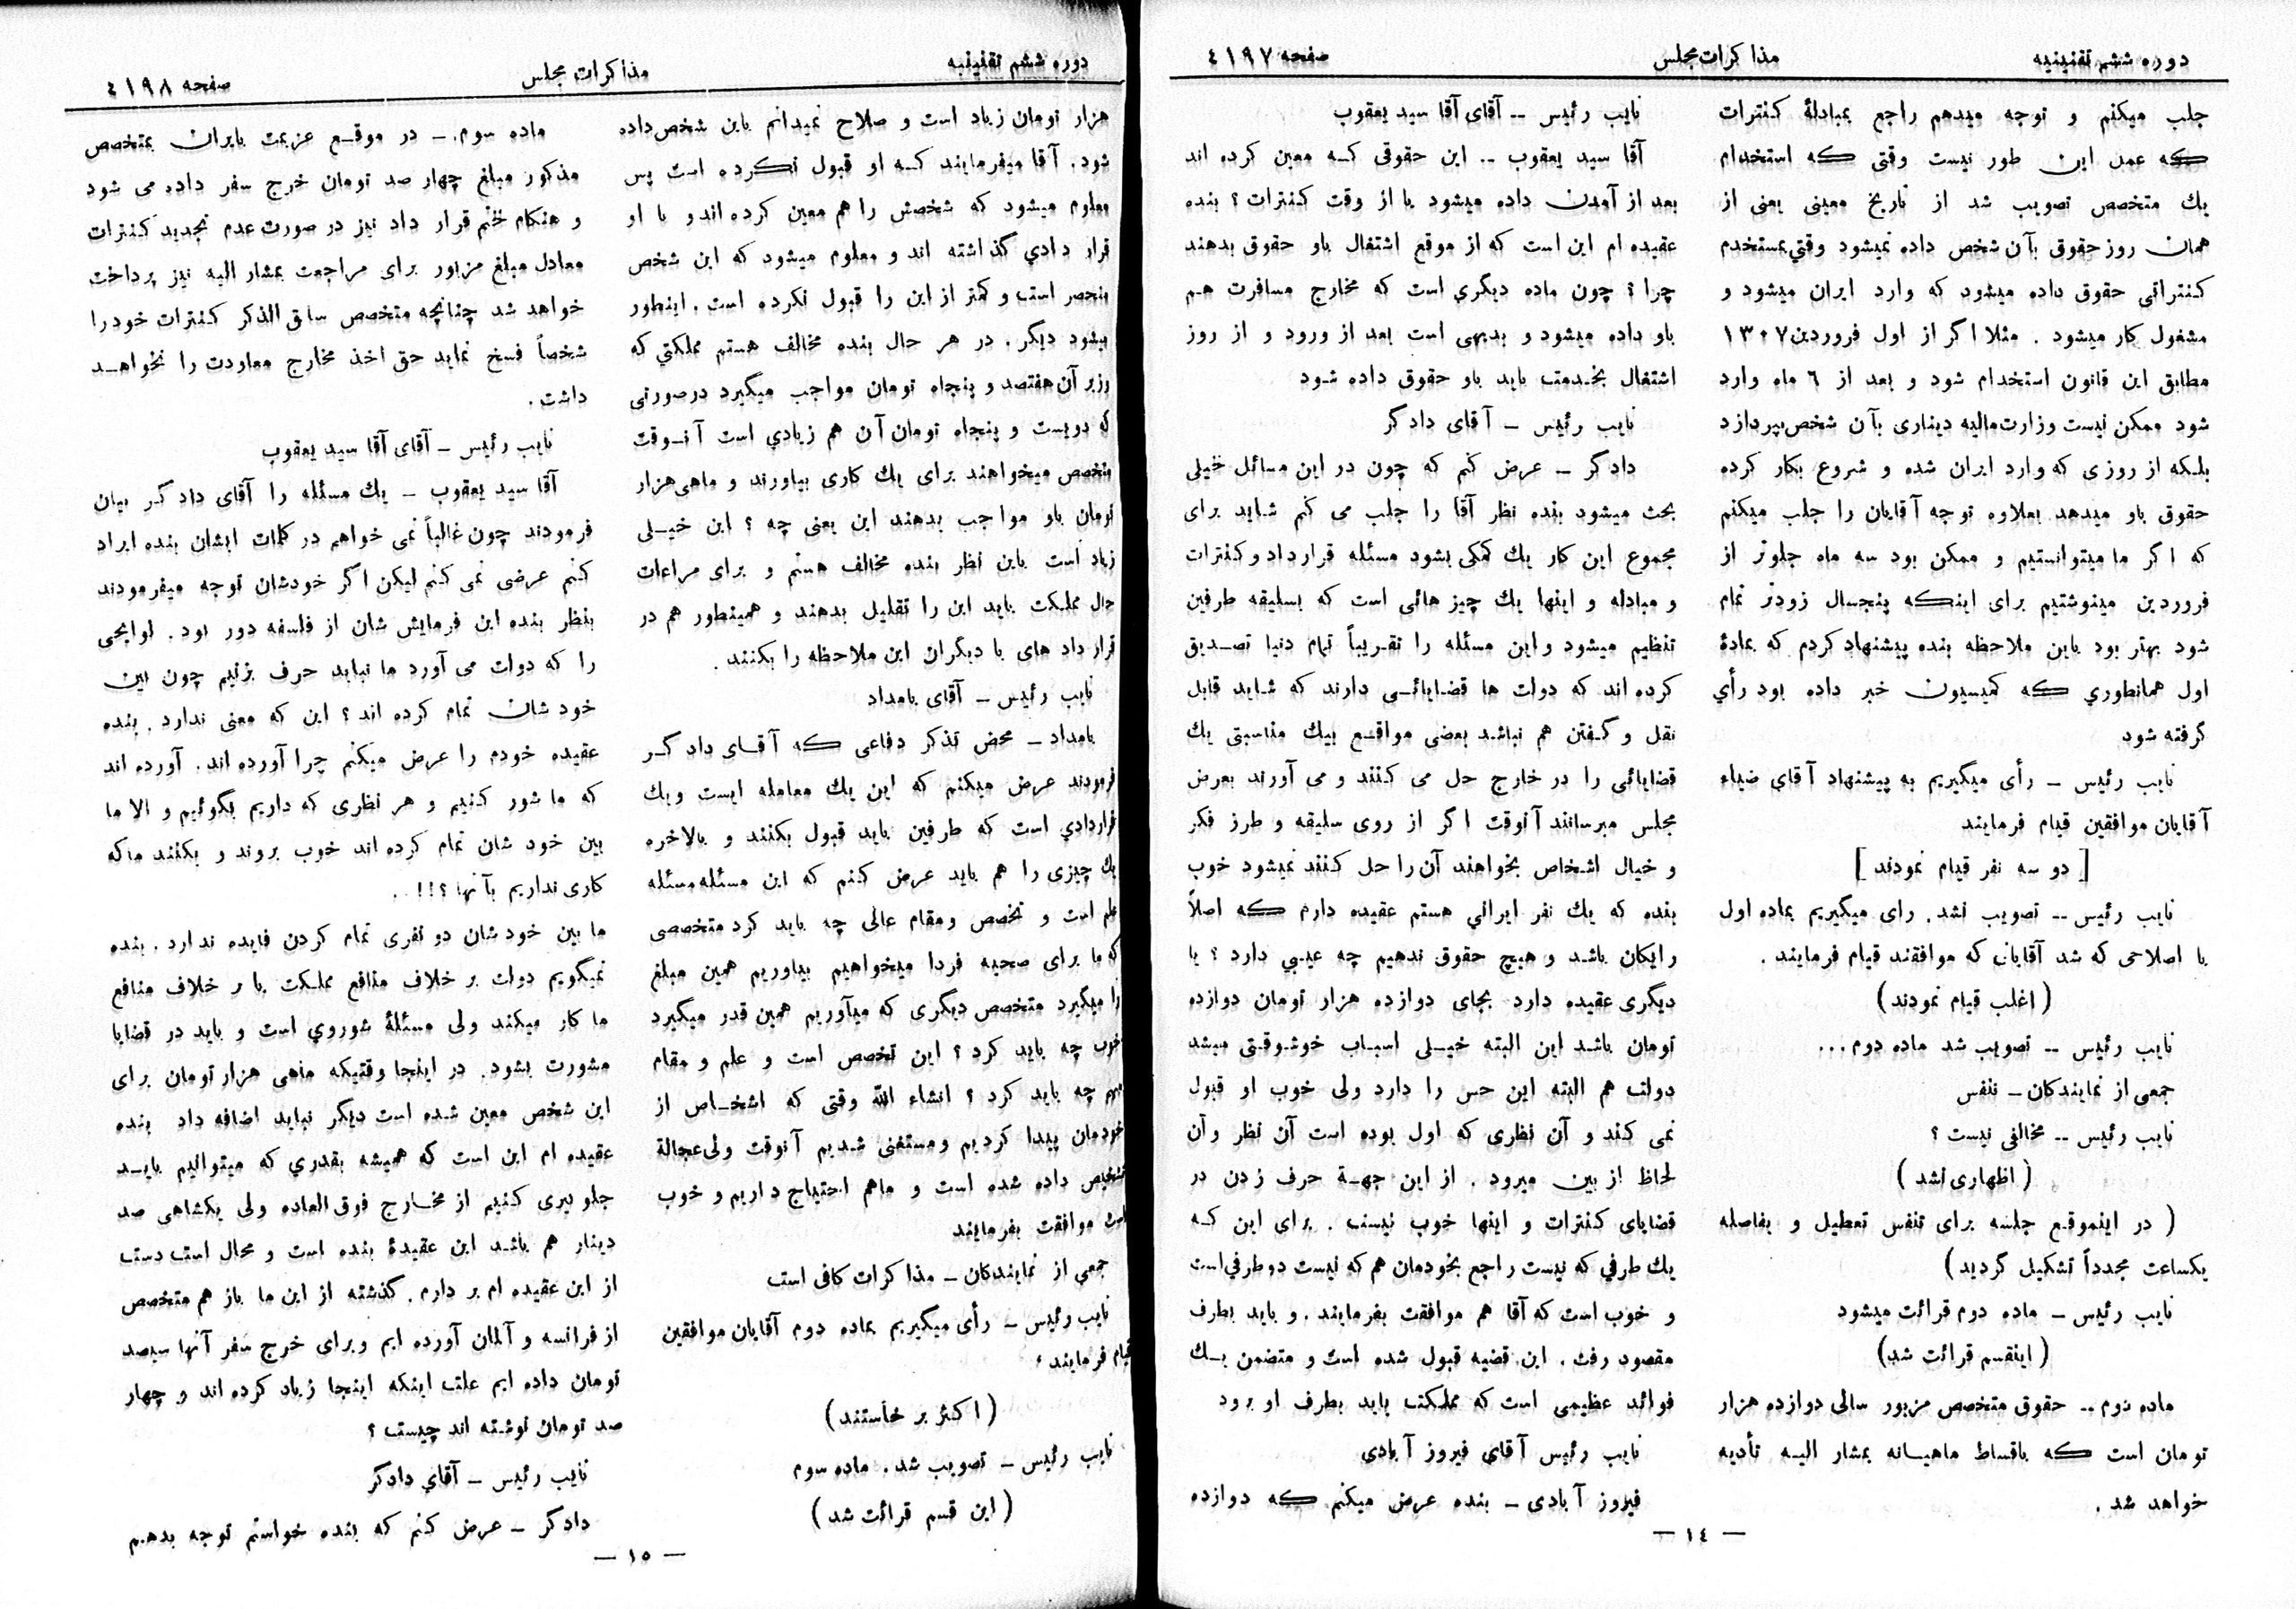 دوره ششم تقنینیه
مذاکرات مجلس
صفحه ٤١٩٧
جلب میکنم و توجه میدهم راجع بمبادلهٔ کنترات
که عمل این طور نیست وقتی که استخدام
یك متخصص تصویب شد از تاریخ معینی یعنی از
همان روز حقوق بآن شخص داده نمیشود وقتی بمستخدم
کنتراتی حقوق داده میشود که وارد ایران میشود و
مشغول کار میشود . مثلا اگر از اول فروردین ۱۳۰۷
مطابق این قانون استخدام شود و بعد از ٦ ماه وارد
شود ممکن نیست وزارت مالیه دیناری بآن شخص بپردازد
بلکه از روزی که وارد ایران شده و شروع بکار کرده
حقوق باو میدهد بعلاوه توجه آقایان را جلب میکنم
که اگر ما میتوانستیم و ممکن بود سه ماه جلوتر از
فروردین مینوشتیم برای اینکه پنجسال زودتر تمام
شود بهتر بود باین ملاحظه بنده پیشنهاد کردم که بمادهٔ
اول همانطوري که کمیسیون خبر داده بود رأي
گرفته شود
نایب رئیس – رأی میگیریم به پیشنهاد آقای ضیاء
آقایان موافقین قیام فرمایند
[ دو سه نفر قیام نمودند ]
نایب رئیس -- تصویب نشد. رای میگیریم بماده اول
با اصلاحی که شد آقایان که موافقند قیام فرمایند .
(اغلب قیام نمودند)
نایب رئیس -- تصویب شد ماده دوم...
جمعی از نمایندکان – تنفس
نایب رئیس -- مخالفی نیست ؟
( اظهاری نشد )
( در اینموقع جلسه برای تنفس تعطیل و بفاصله
یکساعت مجدداً تشکیل گردید)
نایب رئیس – ماده دوم قرائت میشود
(اینقسم قرائت شد)
ماده دوم -- حقوق متخصص مزبور سالی دوازده هزار
تومان است که باقساط ماهیانه بمشار الیه تأدیه
خواهد شد .
نایب رئیس -- آقای آقا سید یعقوب
آقا سید یعقوب -- این حقوقی که معین کرده اند
بعد از آمدن داده میشود یا از وقت کنترات ؟ بنده
عقیده ام این است که از موقع اشتغال باو حقوق بدهند
چرا ؟ چون ماده دیگري است که مخارج مسافرت هم
باو داده میشود و بدیهی است بعد از ورود و از روز
اشتغال بخدمت باید باو حقوق داده شود
نایب رئیس – آقای دادگر
دادگر – عرض کنم که چون در این مسائل خیلی
بحث میشود بنده نظر آقا را جلب می کنم شاید برای
مجموع این کار یك کمکی بشود مسئله قرارداد و کنترات
و مبادله و اینها یك چیز هائی است که بسلیقه طرفین
تنظیم میشود و این مسئله را تقریباً تمام دنیا تصدیق
کرده اند که دولت ها قضایائی دارند که شاید قابل
نقل و گفتن هم نباشد بعضی مواقع بیك مناسبتی یك
قضایائی را در خارج حل می کنند و می آورند بعرض
مجلس میرسانند آنوقت اگر از روی سلیقه و طرز فکر
و خیال اشخاص بخواهند آن را حل کنند نمیشود خوب
بنده که یك نفر ایراني هستم عقیده دارم که اصلاً
رایکان باشد و هیچ حقوق ندهیم چه عیبي دارد ؟ یا
دیگری عقیده دارد بجای دوازده هزار تومان دوازده
تومان باشد این البته خیلی اسباب خوشوقتی میشد
دولت هم البته این حس را دارد ولی خوب او قبول
نمی کند و آن نظری که اول بوده است آن نظر و آن
لحاظ از بین میرود . از این جهة حرف زدن در
قضایای کنترات و اینها خوب نیست . برای این که
یك طرفي که نیست راجع بخودمان هم که نیست دو طرفي است
و خوب است که آقا هم موافقت بفرمایند . و باید بطرف
مقصود رفت . این قضیه قبول شده است و متضمن یك
فوائد عظیمی است که مملکت باید بطرف او برود
نایب رئیس آقای فیروز آبادی
فیروز آبادی – بنده عرض میکنم که دوازده
— ١٤ —
دوره ششم تقنینیه
مذاکرات مجلس
صفحه ٤١٩٨
هزار تومان زیاد است و صلاح نمیدانم باین شخص داده
شود . آقا میفرمایند که او قبول نکرده است پس
معلوم میشود که شخصش را هم معین کرده اند و با او
قرار دادي گذاشته اند و معلوم میشود که این شخص
منحصر است و کمتر از این را قبول نکرده است . اینطور
میشود دیگر . در هر حال بنده مخالف هستم مملکتي که
وزیر آن هفتصد و پنجاه تومان مواجب میگیرد در صورتی
که دویست و پنجاه تومان آن هم زیادي است آنوقت
متخصص میخواهند برای یك کاری بیاورند و ماهی هزار
تومان باو مواجب بدهند این یعنی چه ؟ این خیلی
زیاد است باین نظر بنده مخالف هستم و برای مراعات
حال مملکت باید این را تقلیل بدهند و همینطور هم در
قرار داد های با دیگران این ملاحظه را بکنند .
نایب رئیس – آقای بامداد
بامداد – محض تذکر دفاعی که آقای دادگر
فرمودند عرض میکنم که این یك معامله ایست و یك
قراردادي است که طرفین باید قبول بکنند و بالاخره
یك چیزی را هم باید عرض کنم که این مسئله مسئله
علم است و تخصص و مقام عالی چه باید کرد متخصصی
که ما برای صحیه فردا میخواهیم بیاوریم همین مبلغ
را میگیرد متخصص دیگری که میآوریم همین قدر میگیرد
خوب چه باید کرد ؟ این تخصص است و علم و مقام
مهم چه باید کرد ؟ انشاء الله وقتی که اشخاص از
خودمان پیدا کردیم و مستغنی شدیم آنوقت ولی عجالة
تشخیص داده شده است و ماهم احتیاج داریم و خوب
است موافقت بفرمایند
جمعي از نمایندکان – مذاکرات کافی است
نایب رئیس – رأی میگیریم بماده دوم آقایان موافقین
قیام فرمایند
(اکثر بر خاستند)
نایب رئیس – تصویب شد . ماده سوم
( این قسم قرائت شد )
ماده سوم – در موقع عزیمت بایران بمتخصص
مذکور مبلغ چهار صد تومان خرج سفر داده می شود
و هنکام ختم قرار داد نیز در صورت عدم تجدید کنترات
معادل مبلغ مزبور برای مراجعت بمشار الیه نیز پرداخت
خواهد شد چنانچه متخصص سابق الذکر کنترات خود را
شخصاً فسخ نماید حق اخذ مخارج معاودت را نخواهد
داشت .
نایب رئیس – آقای آقا سید یعقوب
آقا سید یعقوب – یك مسئله را آقای دادگر بیان
فرمودند چون غالباً نمی خواهم در کلمات ایشان بنده ایراد
کنم عرضی نمی کنم لیکن اگر خودشان توجه میفرمودند
بنظر بنده این فرمایش شان از فلسفه دور بود . لوایحی
را که دولت می آورد ما نباید حرف بزنیم چون بین
خود شان تمام کرده اند ؟ این که معنی ندارد . بنده
عقیده خودم را عرض میکنم چرا آورده اند . آورده اند
که ما شور کنیم و هر نظری که داریم بگوئیم و الا ما
بین خود شان تمام کرده اند خوب بروند و بکنند ما که
کاری نداریم بآنها ؟!! .
ما بین خود شان دو نفری تمام کردن فایده ندارد . بنده
نمیگویم دولت بر خلاف منافع مملکت یا بر خلاف منافع
ما کار میکند ولی مسئلهٔ شوروي است و باید در قضایا
مشورت بشود . در اینجا وقتیکه ماهی هزار تومان برای
این شخص معین شده است دیگر نباید اضافه داد بنده
عقیده ام این است که همیشه بقدري که میتوانیم باید
جلوگیری کنیم از مخارج فوق العاده ولی یکشاهی صد
دینار هم باشد این عقیدهٔ بنده است و محال است دست
از این عقیده ام بر دارم . گذشته از این ما باز هم متخصص
از فرانسه و آلمان آورده ایم و برای خرج سفر آنها سیصد
تومان داده ایم علت اینکه اینجا زیاد کرده اند و چهار
صد تومان نوشته اند چیست ؟
نایب رئیس – آقاي دادگر
دادگر – عرض کنم که بنده خواستم توجه بدهم
— ١٥ —